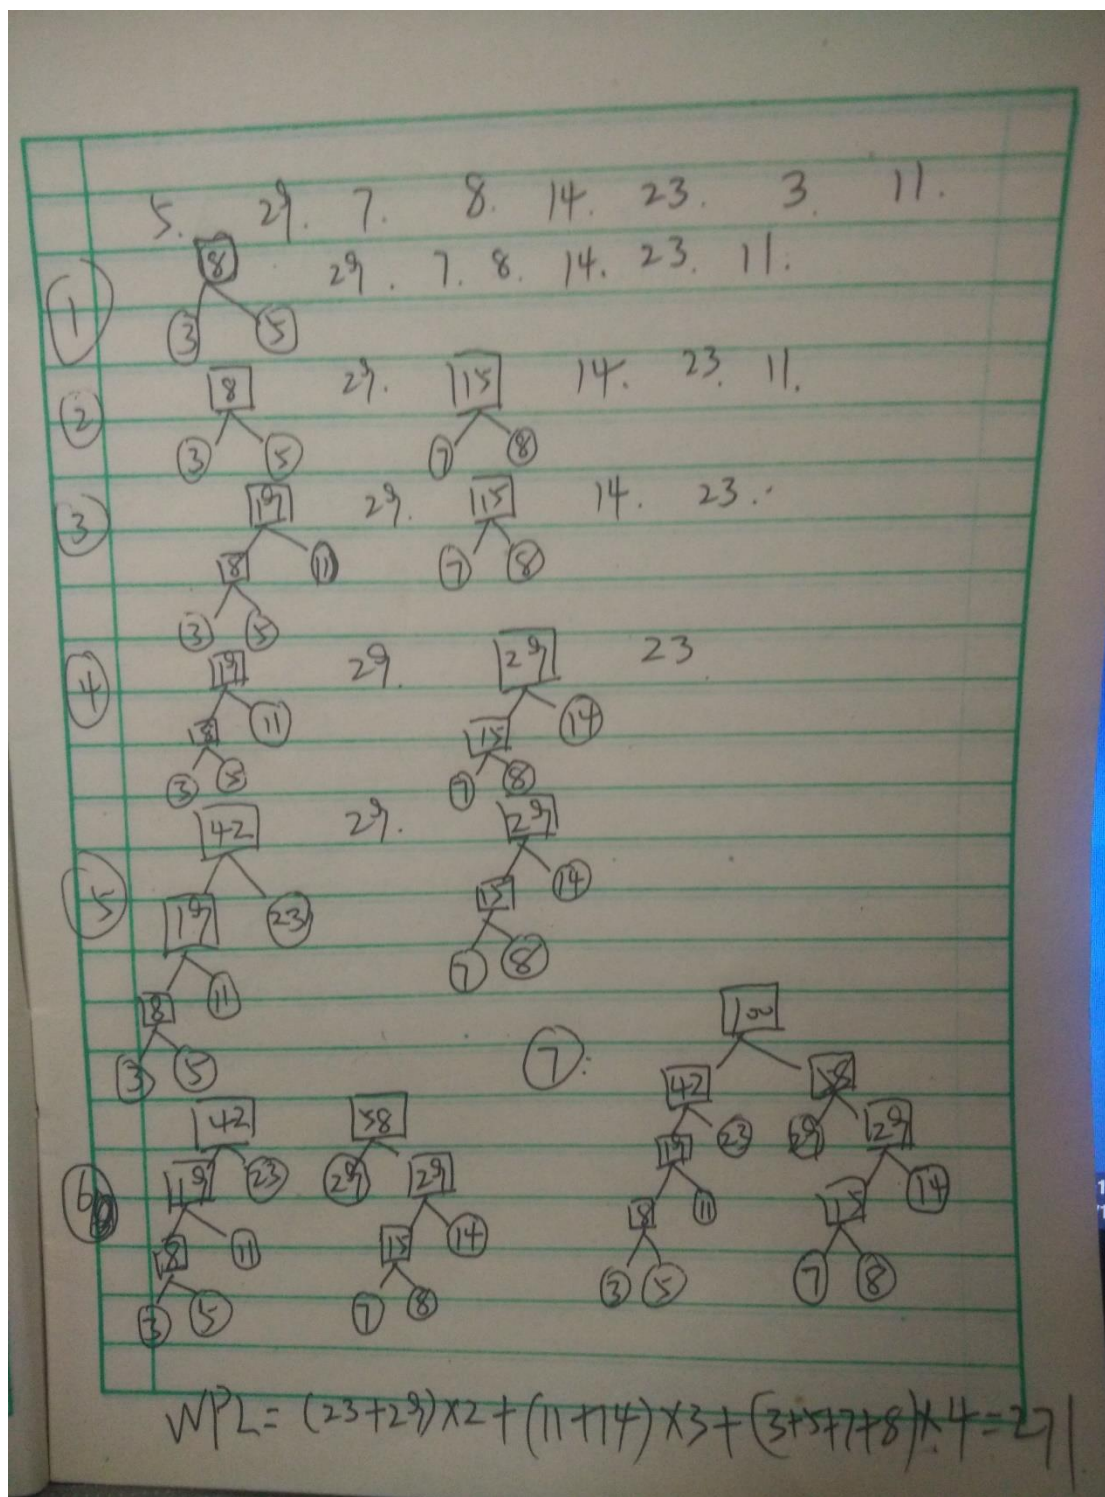 5. 29. 7. 8. 14. 23. 3. 11.
① 8 29. 7. 8. 14. 23. 11.
3 5
② 8 29. 15 14. 23. 11.
3 5 7 8
③ 19 29. 15 14. 23.
8 11 7 8
3 5
④ 19 29. 29 23
8 11 15 14
3 5 7 8
⑤ 42 29. 29
19 23 15 14
8 11 7 8
3 5
⑥ 42 58
19 23 29 29
8 11 15 14
3 5 7 8
⑦: 100
42 58
19 23 29 29
8 11 15 14
3 5 7 8
WPL=(23+29)×2+(11+14)×3+(3+5+7+8)×4=271